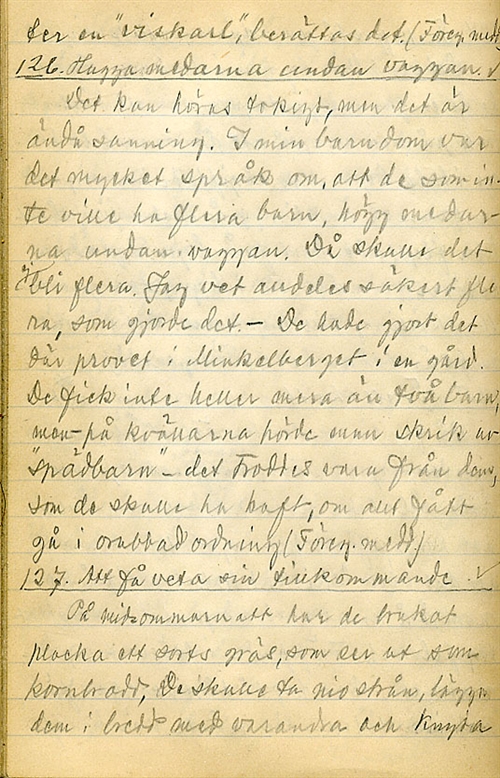 ter en "viskarl", berättas det. (Förey. medd
126. Hugga medarna undan vaggan.
Det kan höras tokigt, men det är
ändå sanning. I min barndom var
det mycket språk om, att de som in-
te ville ha flera barn, högg medar-
na undan vaggan. Då skulle det
ej bli flera. Jag vet alldeles säkert fle
ra, som gjorde det. – De hade gjort det
där provet i Minkelberget i en gård.
De fick inte heller mera än två barn,
men på kvällarna hörde man skrik av
"spädbarn" – det troddes vara från dem,
som de skulle ha haft, om allt fått
gå i orubbad ordning (Förey. medd.)
127. Att få veta sin tillkommande.
På midsommarnatt har de brukat
plocka ett sorts gräs, som ser ut som
kornbrodd, De skulle ta nio strån, lägga
dem i bredd med varandra och knyta